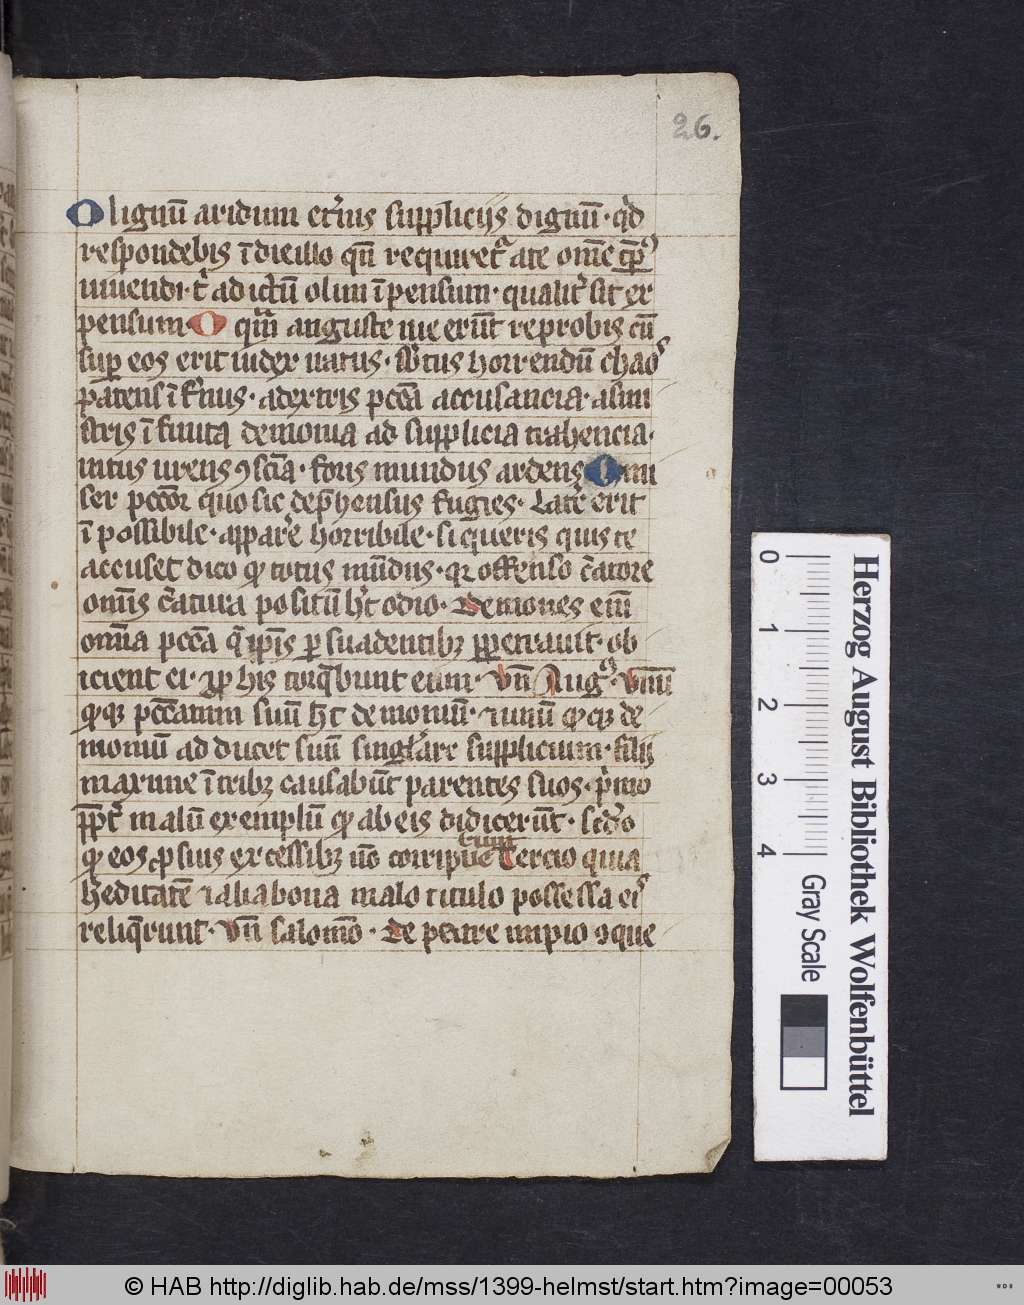 26.
O lignū aridum et̓nis supplicijs dignū· qͥd
respondebis ī die illo qn̄ requiret᷑ a te om̄e tp̄s
uiuendi· t̓ ad ictū olim īpensum· qualit̓ sit ex
pensum· O qm̄ anguste uie erūt reprobis cū
sup̱ eos erit iudex iratus· sbtus horrendū chaos
patens īfernus· a dextris pcc̄a accusancia· a sini
stris īfinita demonia ad supplicia trahencia·
intus urens ꝯscīa· foris mundus ardens O mi
ser pcc̄or quo sic dep̄hensus fugies· Late̓ erit
īpossibile· appare̓ horribile· si queris quis te
accuset dico ꝙ totus mūdus· qꝛ offenso c̄atore
om̄is c̄atura positū ht̄ odio· Demones eīm
om̄ia pcc̄a q̄ ip̄is ꝑsuadentibꝫ ꝑpetrauit· ob
icient ei· ⁊ ꝓ his torq̄bunt eum· Vn̄ Aug9· Vnūͣ
qͦꝙꝫ pcc̄atum suū ht̄ demoniū· ⁊ unū qͦꝙꝫ de
moniū adducet suū singlare̓ supplicium· filij
maxime ī tribꝫ causabūt parentes suos· pͥmo
ꝓpt̓ malū exemplū ꝙ ab eis didicerūt· scd̓o
ꝙ eos ꝓ suis excessibꝫ nō corripue
runt
Tercio quia
heditatē ⁊ alia bona malo titulo possessa eis
reliq̄runt· Vn̄ salomō· De patre impio ꝯque
Herzog August Bibliothek Wolfenbüttel
0 1 2 3 4 Gray Scale
© HAB http://diglib.hab.de/mss/1399-helmst/start.htm?image=00053